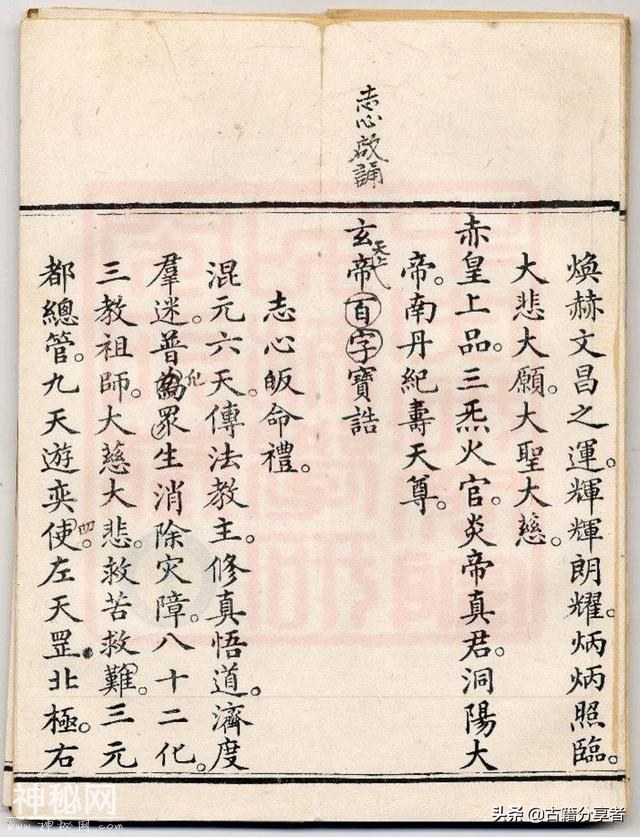 煥赫文昌之運。輝輝朗耀。炳炳照臨。
大悲大願。大聖大慈。
赤皇上品。三炁火官。炎帝真君。洞陽大
帝。南丹紀壽天尊。
志心啟誦
玄帝百字寶誥
天上
志心皈命禮。
混元六天。傳法教主。修真悟道。濟度
羣迷。普為眾生消除灾障。八十二化。
三教祖師。大慈大悲。救苦救難。三元
都總管。九天遊奕使。左天罡。北極。右
神秘网
www.70cn.com
头条 @古籍分享者